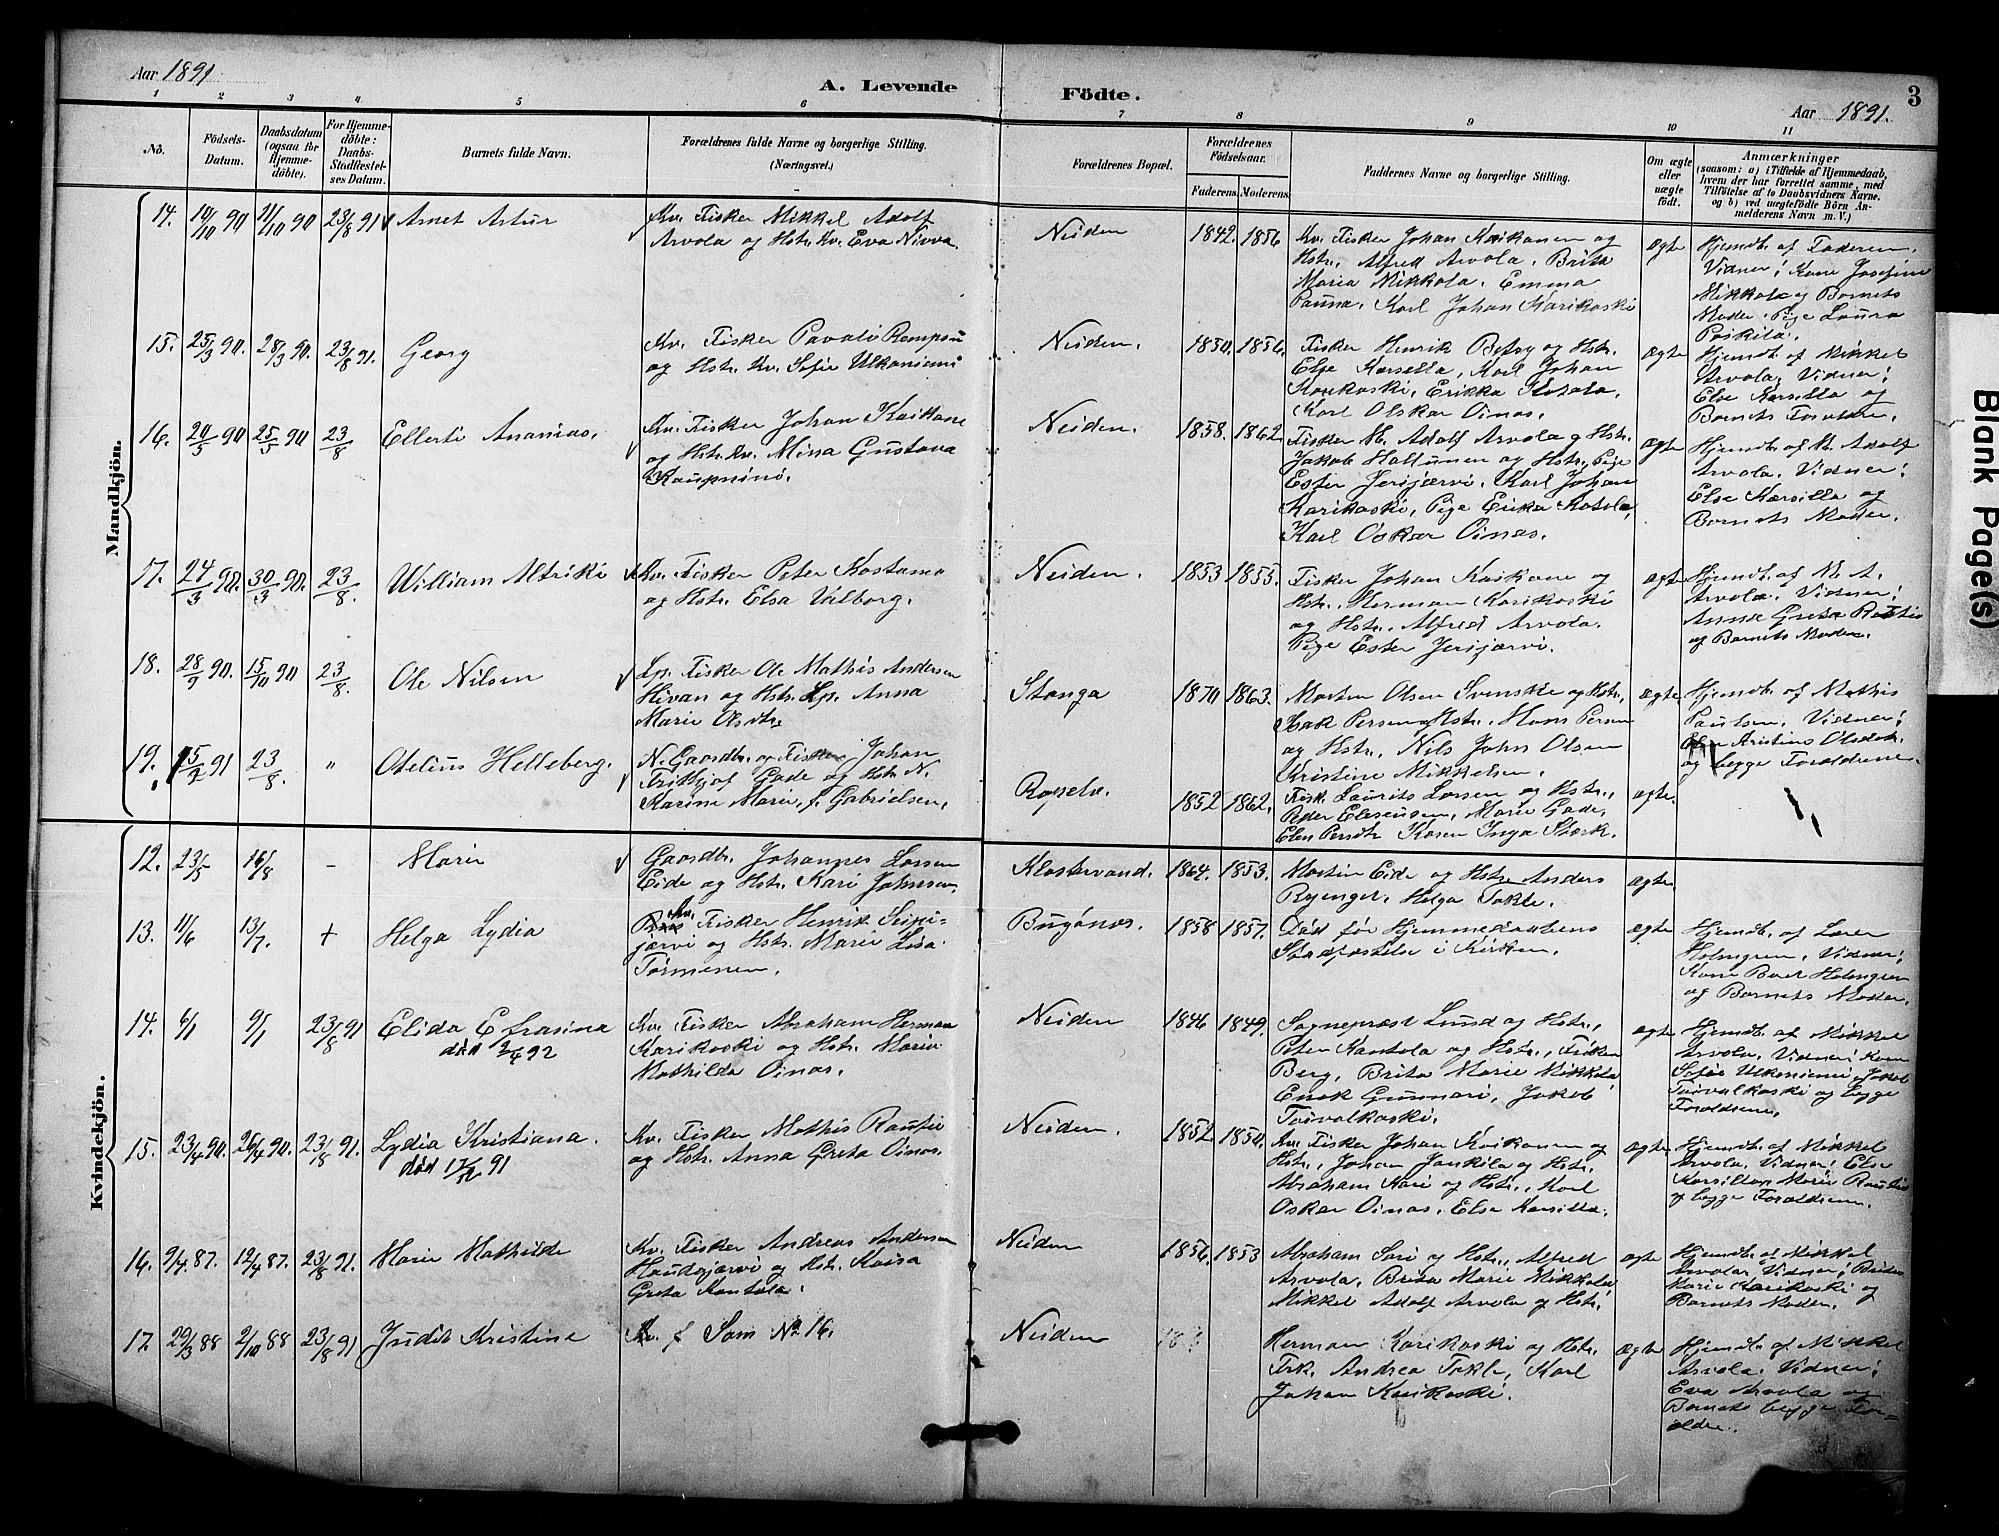 Aar 1891
A. Levende Födte.
Aar 1891.
3
1 2 3 4 5 6 7 8 9 10 11
No.
Födsels-Datum.
Daabsdatum (ogsaa for Hjemme-döbte).
For Hjemme-döbte: Daabs-Stadfæstel-ses Datum.
Barnets fulde Navn.
Forældrenes fulde Navne og borgerlige Stilling.
(Næringsvei.)
Forældrenes Bopæl.
Forældrenes Födselsaar.
Faderens. Moderens.
Faddernes Navne og borgerlige Stilling.
Om ægte eller uægte födt.
Anmærkninger
(saasom: a) i Tilfælde af Hjemmedaab,
hvem der har forrettet samme, med
Tilföielse af to Daabsvidners Navne,
og b) ved uægtefödte Börn An-
melderens Navn m. V.)
Mandkjön.
14. 10/10 90 11/10 90 23/8 91 Arnet Artur
Kv. Fisker Mikkel Adolf
Arvola og Hstr. Kv. Eva Nivva.
Neiden 1842. 1856
Kv. Fisker Johan Kaikanen og
Hstr., Alfred Arvola, Brita
Maria Mikkola, Emma
Pauna, Karl Johan Karikoski
ægte
Hjemdt. af Faderen.
Vidner: Kone Josefine
Mikkola og Barnets
Moder, Pige Laura
15. 25/3 90. 28/3 90. 23/8 91. Georg
Kv. Fisker Pavali
og Hstr. Kv. Sofie Ulkoniemi
Neiden. 1850. 1856.
Fisker Henrik Betsy og Hstr.
Else Karsella, Karl Johan
Erikka Kotola,
Karl Oskar Oinas.
ægte
Hjemdt. af Mikkel
Arvola. Vidner:
Else Karsilla og
Barnets Forældre.
16. 20/5 90 25/5 90 23/8 Ellerti Ananias.
Kv. Fisker Johan Kaikane
og Hstr. Kv. Mina Gustava
Neiden. 1858. 1862.
Fisker M. Adolf Arvola og Hstr.
Jakob Hallunen og Hstr., Pige
Ester Jerijærvi, Karl Johan
Karikoski, Pige Erika Kotola,
Karl Oskar Oinas.
ægte
Hjemdt. af M. Adolf
Arvola. Vidner:
Else Karsilla og
Barnets Moder.
17. 24/3 90. 30/3 90. 23/8 William Alfriki
Kv. Fisker Peter Kostamo
og Hstr. Elsa Valborg.
Neiden. 1853 1855.
Fisker Johan Kaikane og
Hstr., Herman Karikoski
og Hstr., Alfred Arvola.
Pige Ester Jerijærvi.
ægte
Hjemdt. af M. A.
Arvola, Vidner:
Anna Greta Rautio
og Barnets Moder.
18. 28/9 90. 15/10 90 23/8. Ole Nilsen
Lp. Fisker Ole Mathis Andersen
Hivan og Hstr. Lp. Anna
Marie Olsdtr.
Stanga 1870 1863.
Morten Olsen Svenske og Hstr.,
Isak Persen og Hstr., Hans Persen
og Hstr., Nils John Olsen
Kristine Mikkelsen.
ægte
Hjemdt. af Mathis
Paulsen. Vidner:
Kristine Olsdtr.
og begge Forældrene.
19. 15/2 91 23/8. " Otelius Helleberg.
N. Gaardbr. og Fisker Johan
Frithjof Gade og Hstr. N.
Karine Marie, f. Gabrielsen.
Ropelv. 1852 1862.
Fisk. Laurits Larsen og Hstr.,
Peder Eleseussen, Marie Gade,
Elen Persdtr. Karen Inga Stærk.
ægte.
Kvindekjön.
12. 23/5 16/8 - Marie
Gaardbr. Johannes Larsen
Eide og Hstr. Kari Johnsen.
Klostervand. 1864. 1853.
Mortin Eide og Hstr. Anders
Ryenget. Helga Takle.
ægte
13. 11/6 13/7. + Helga Lydia
Kv. Fisker Henrik Seipi-
jærvi og Hstr. Marie Lisa
Tørmenen.
Bugönæs. 1858 1857.
Död för Hjemmedaabens
Stadfæstelse i Kirken.
ægte
Hjemdt. af Lærer
Holmgren, Vidner:
Kone Holmgren
og Barnets Moder.
14. 6/1 9/1 23/8 91 Elida Efrasina
död 2/4 92
Kv. Fisker Abraham Herman
Karikoski og Hstr. Maria
Mathilda Oinas.
Neiden 1846 1849.
Sognepræst Lund og Hstr.,
Peter Kantola og Hstr., Fröken
Berg, Brita Marie Mikkola
Enok Gunnari, Jakob
Taivalkoski.
ægte
Hjemdt. af Mikkel
Arvola. Vidner: Kone
Sofie Ulkoniemi, Jakob
Taivalkoski og begge
Forældrene.
15. 23/4 90. 26/4 90. 23/8 91. Lydia Kristiana.
Kv. Fisker Mathis Rautio
og Hstr. Anna Greta Oinas.
Neiden. 1852 1850.
Kv. Fisker Johan Kaikanen og
Hstr., Johan Jankila og Hstr.
Abraham Kari og Hstr., Karl
Oskar Oinas, Else Karsilla.
ægte
Hjemdt. af Mikkel
Arvola. Vidner: Else
Karsilla, Marie Rautio
og begge Forældrene.
16. 9/4. 87. 12/4 87. 23/8 91. Marie Mathilde
Kv. Fisker Andreas Andersen
Haudajærvi og Hstr. Kaisa
Greta Kantola.
Neiden 1856. 1853
Abraham Sari og Hstr., Alfred
Arvola, Brita Marie Mikkola,
Mikkel Adolf Arvola og Hstr.
ægte
Hjemdt. af Mikkel
Arvola. Vidner:
Marie Karikoski og
Barnets Moder.
17. 29/3 88 2/10 88 23/8 91 Judit Kristine
Som No 16.
Neiden
Herman Karikoski og Hstr.
Frk. Andrea Takle, Karl
Johan Karikoski.
ægte
Hjemdt. af Mikkel
Arvola. Vidner:
Eva Arvola og
Barnets begge For-
ældre.
Blank Page(s)